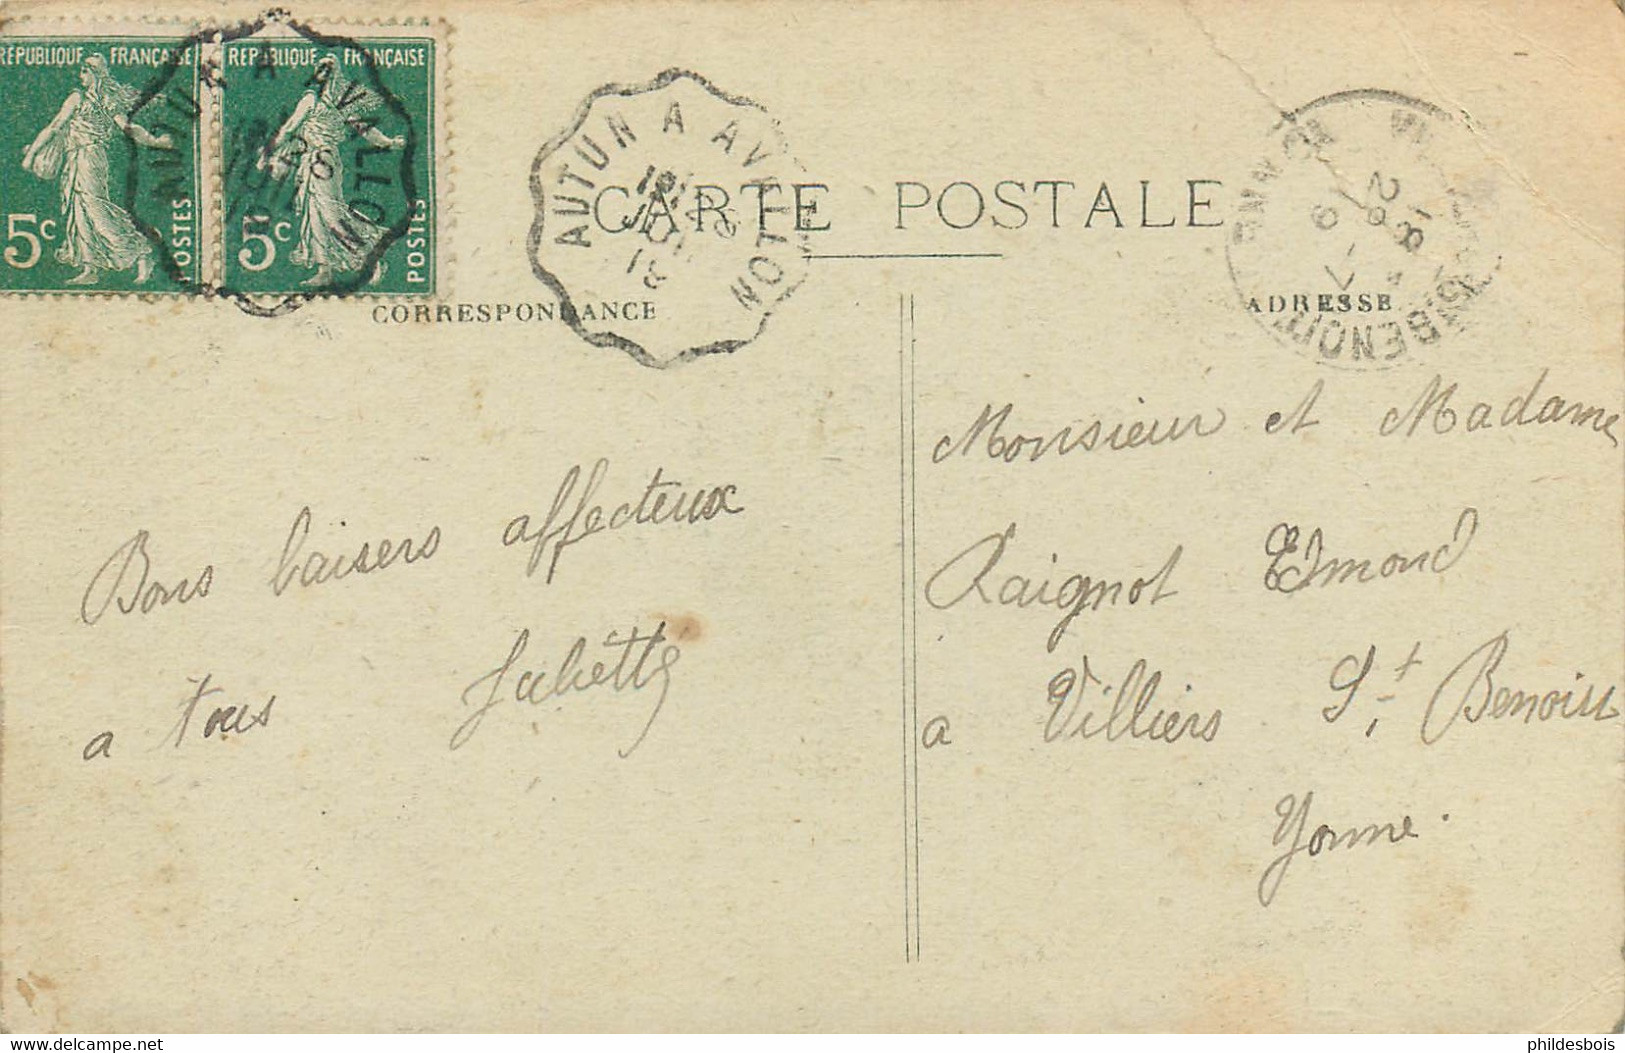 REPUBLIQUE FRANÇAISE
5c
POSTES
REPUBLIQUE FRANÇAISE
5c
POSTES
AUTUN A AVALLON
AUTUN A AVALLON
CARTE POSTALE
CORRESPONDANCE
ADRESSE
Bons baisers affecteux
a tous Juliette
Monsieur et Madame
Raignot Edmond
a Villiers St Benoist
Yonne.
Delcampe.net
phildesbois